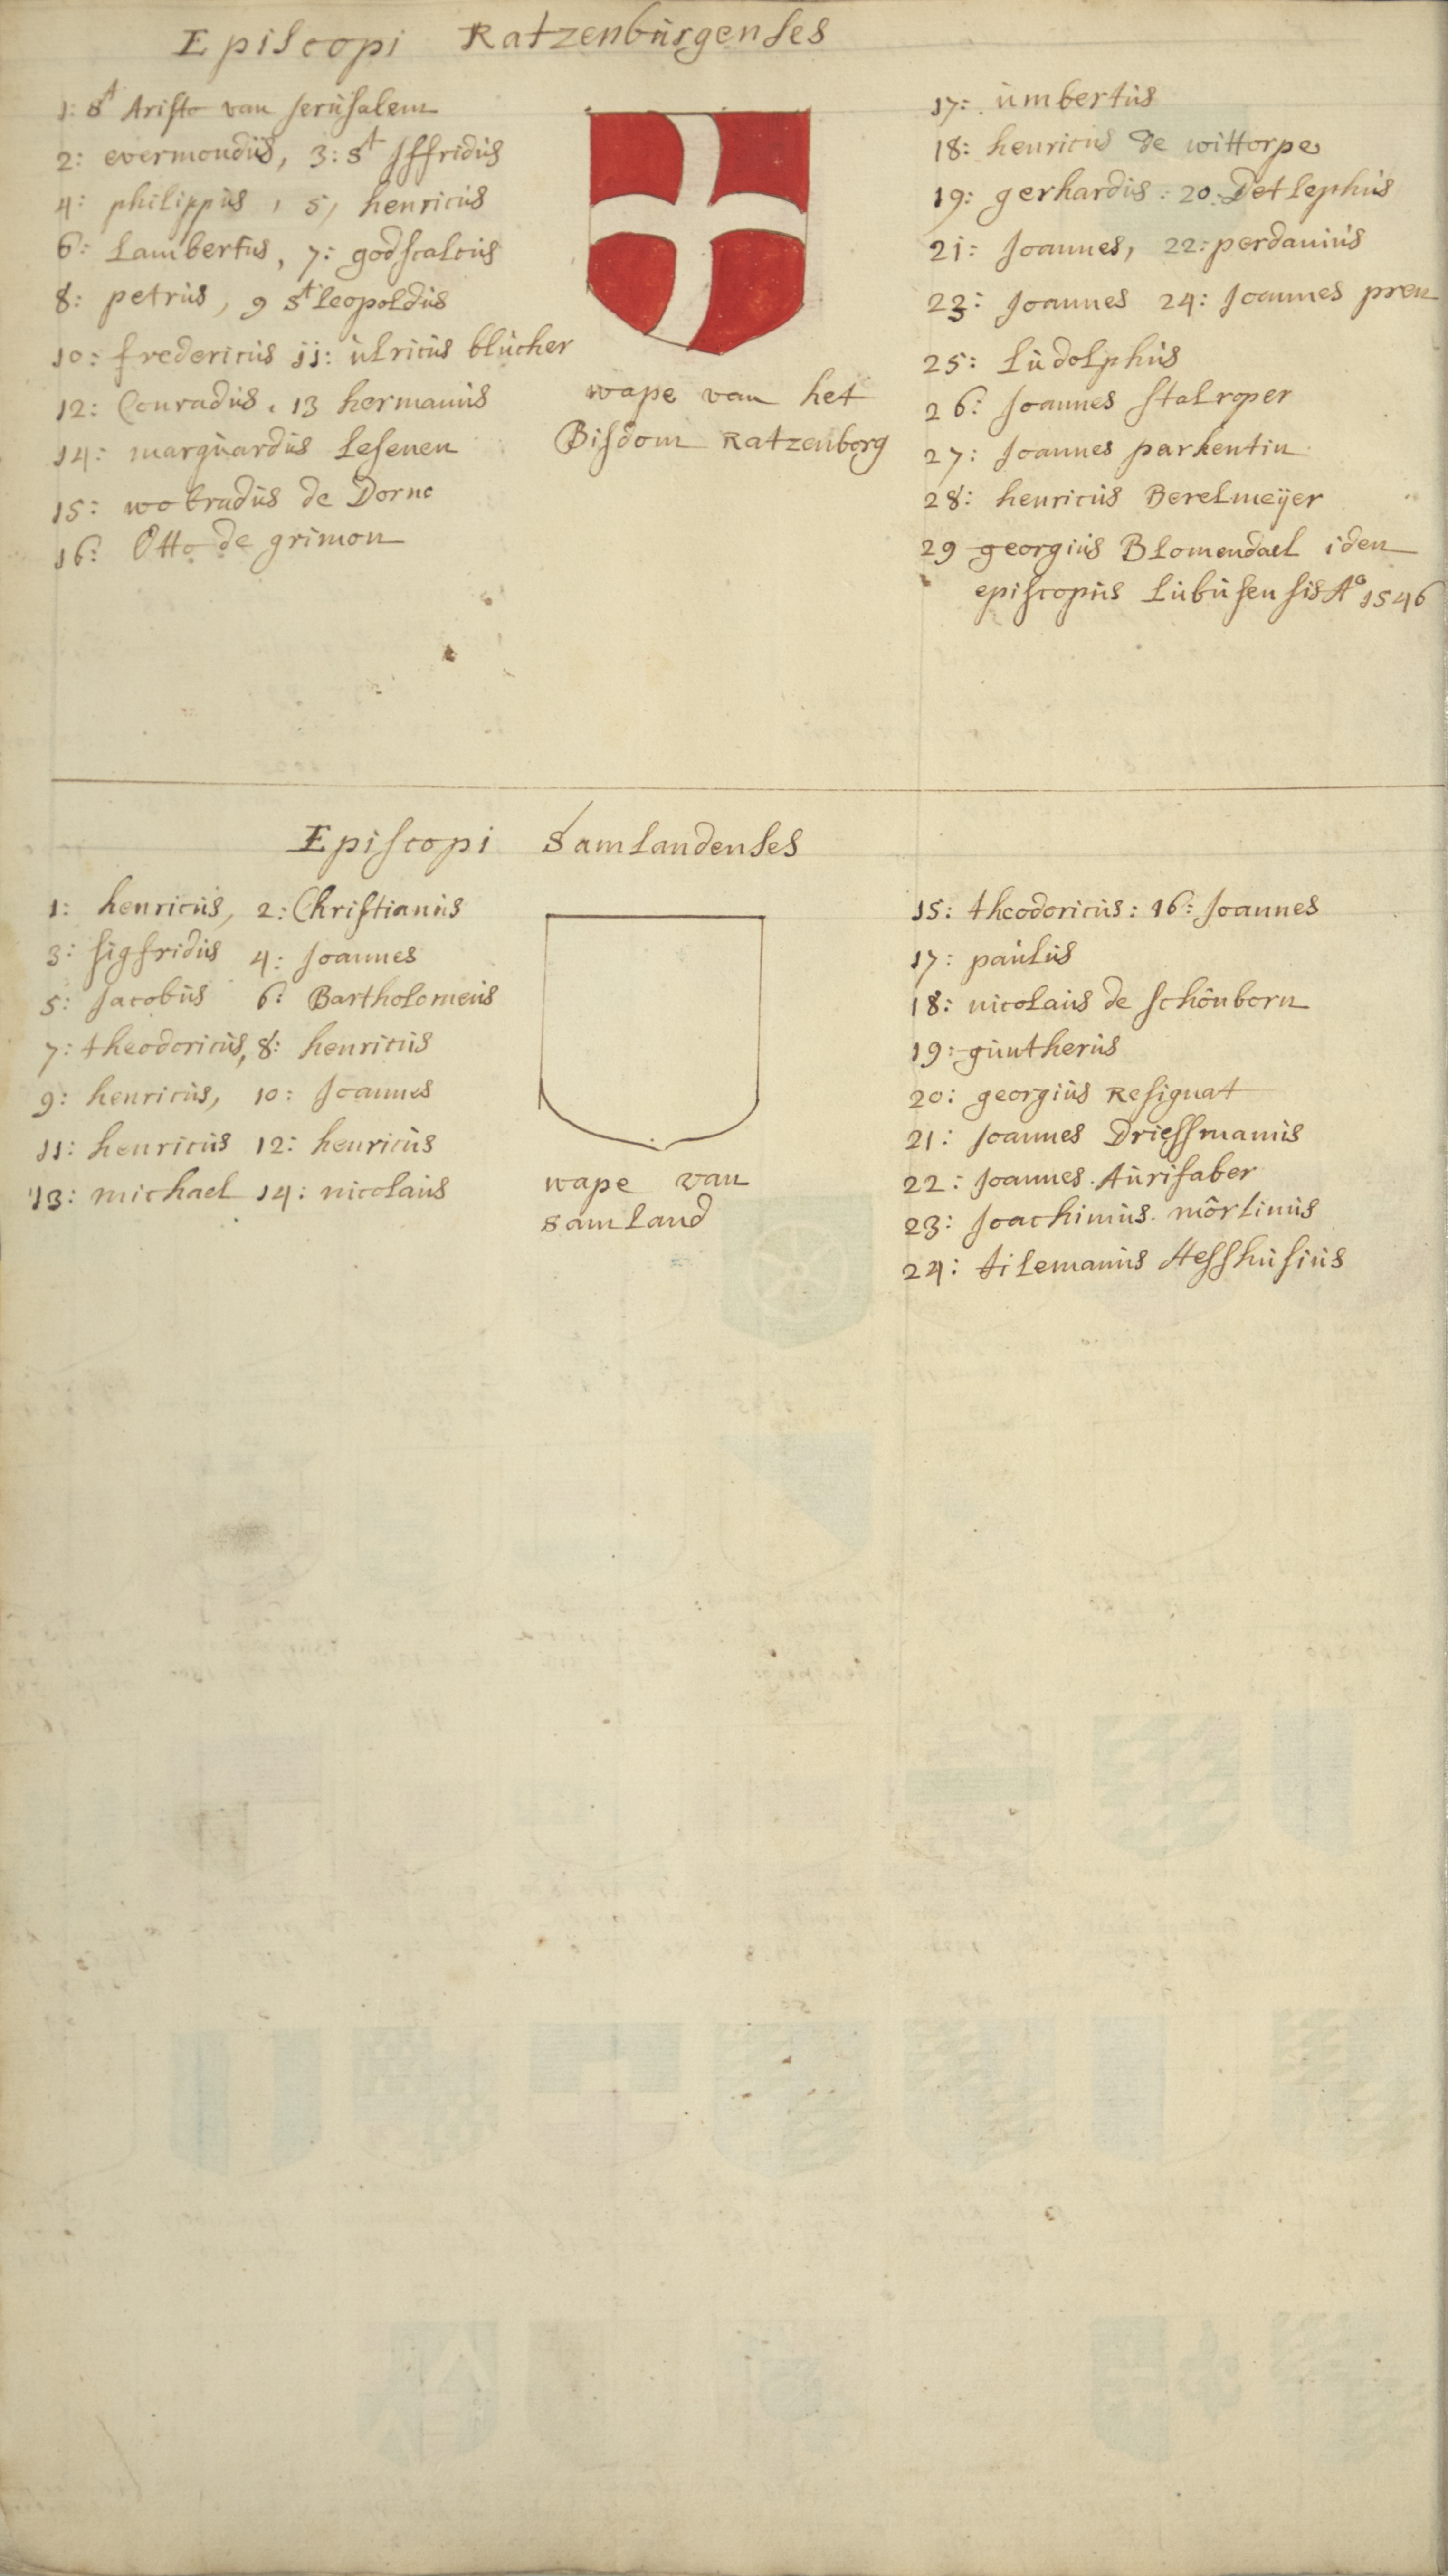 Episcopi Ratzenburgenses
1: St Aristo van Jerusalem
2: evermondus, 3: St Isfridus
4: philippus, 5, henricus
6: Lambertus, 7: godscalcus
8: petrus, 9 St leopoldus
10: fredericus 11: ulricus blucher
12: Conradus. 13 hermanus
14: marquardus Lesenen
15: wolradus de Dorne
16: Otto de grimon
wape van het
Bisdom Ratzenborg
17: umbertus
18: henricus de wittorpe
19: gerhardis: 20: Detlephus
21: Joannes, 22: perdanius
23: Joannes 24: Joannes preu
25: Ludolphus
26: Joannes stalroper
27: Joannes parkentin
28: henricus Berelmeijer
29 georgius Blomendael iden
episcopus Lubusensis Ao 1546
Episcopi Samlandenses
1: henricus, 2: Christianus
3: sigfridus 4: Joannes
5: Jacobus 6: Bartholomeus
7: theodoricus, 8: henricus
9: henricus, 10: Joannes
11: henricus 12: henricus
13: michael 14: nicolaus
wape van
samland
15: theodoricus: 16: Joannes
17: paulus
18: nicolaus de schönborn
19: guntherus
20: georgius Resignat
21: Joannes Driessmanus
22: Joannes. Aurifaber
23: Joachimus. mörlinus
24: tilemanus Hesshusius